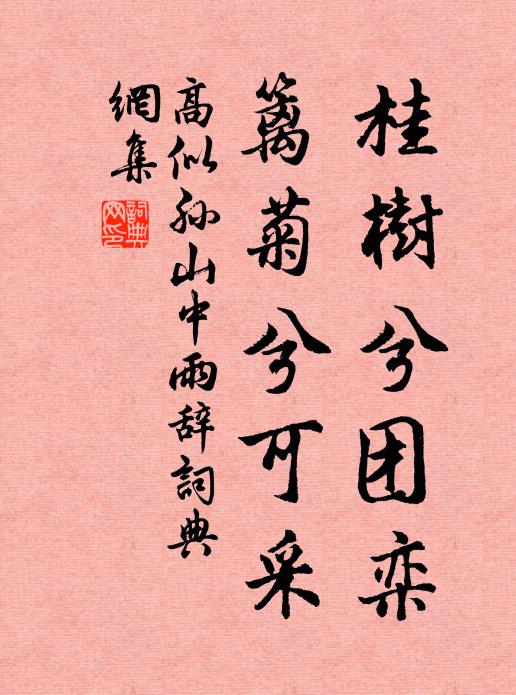 桂樹兮团栾
籬菊兮可采
高似孙山中雨辞詞典
網集
詞典網印